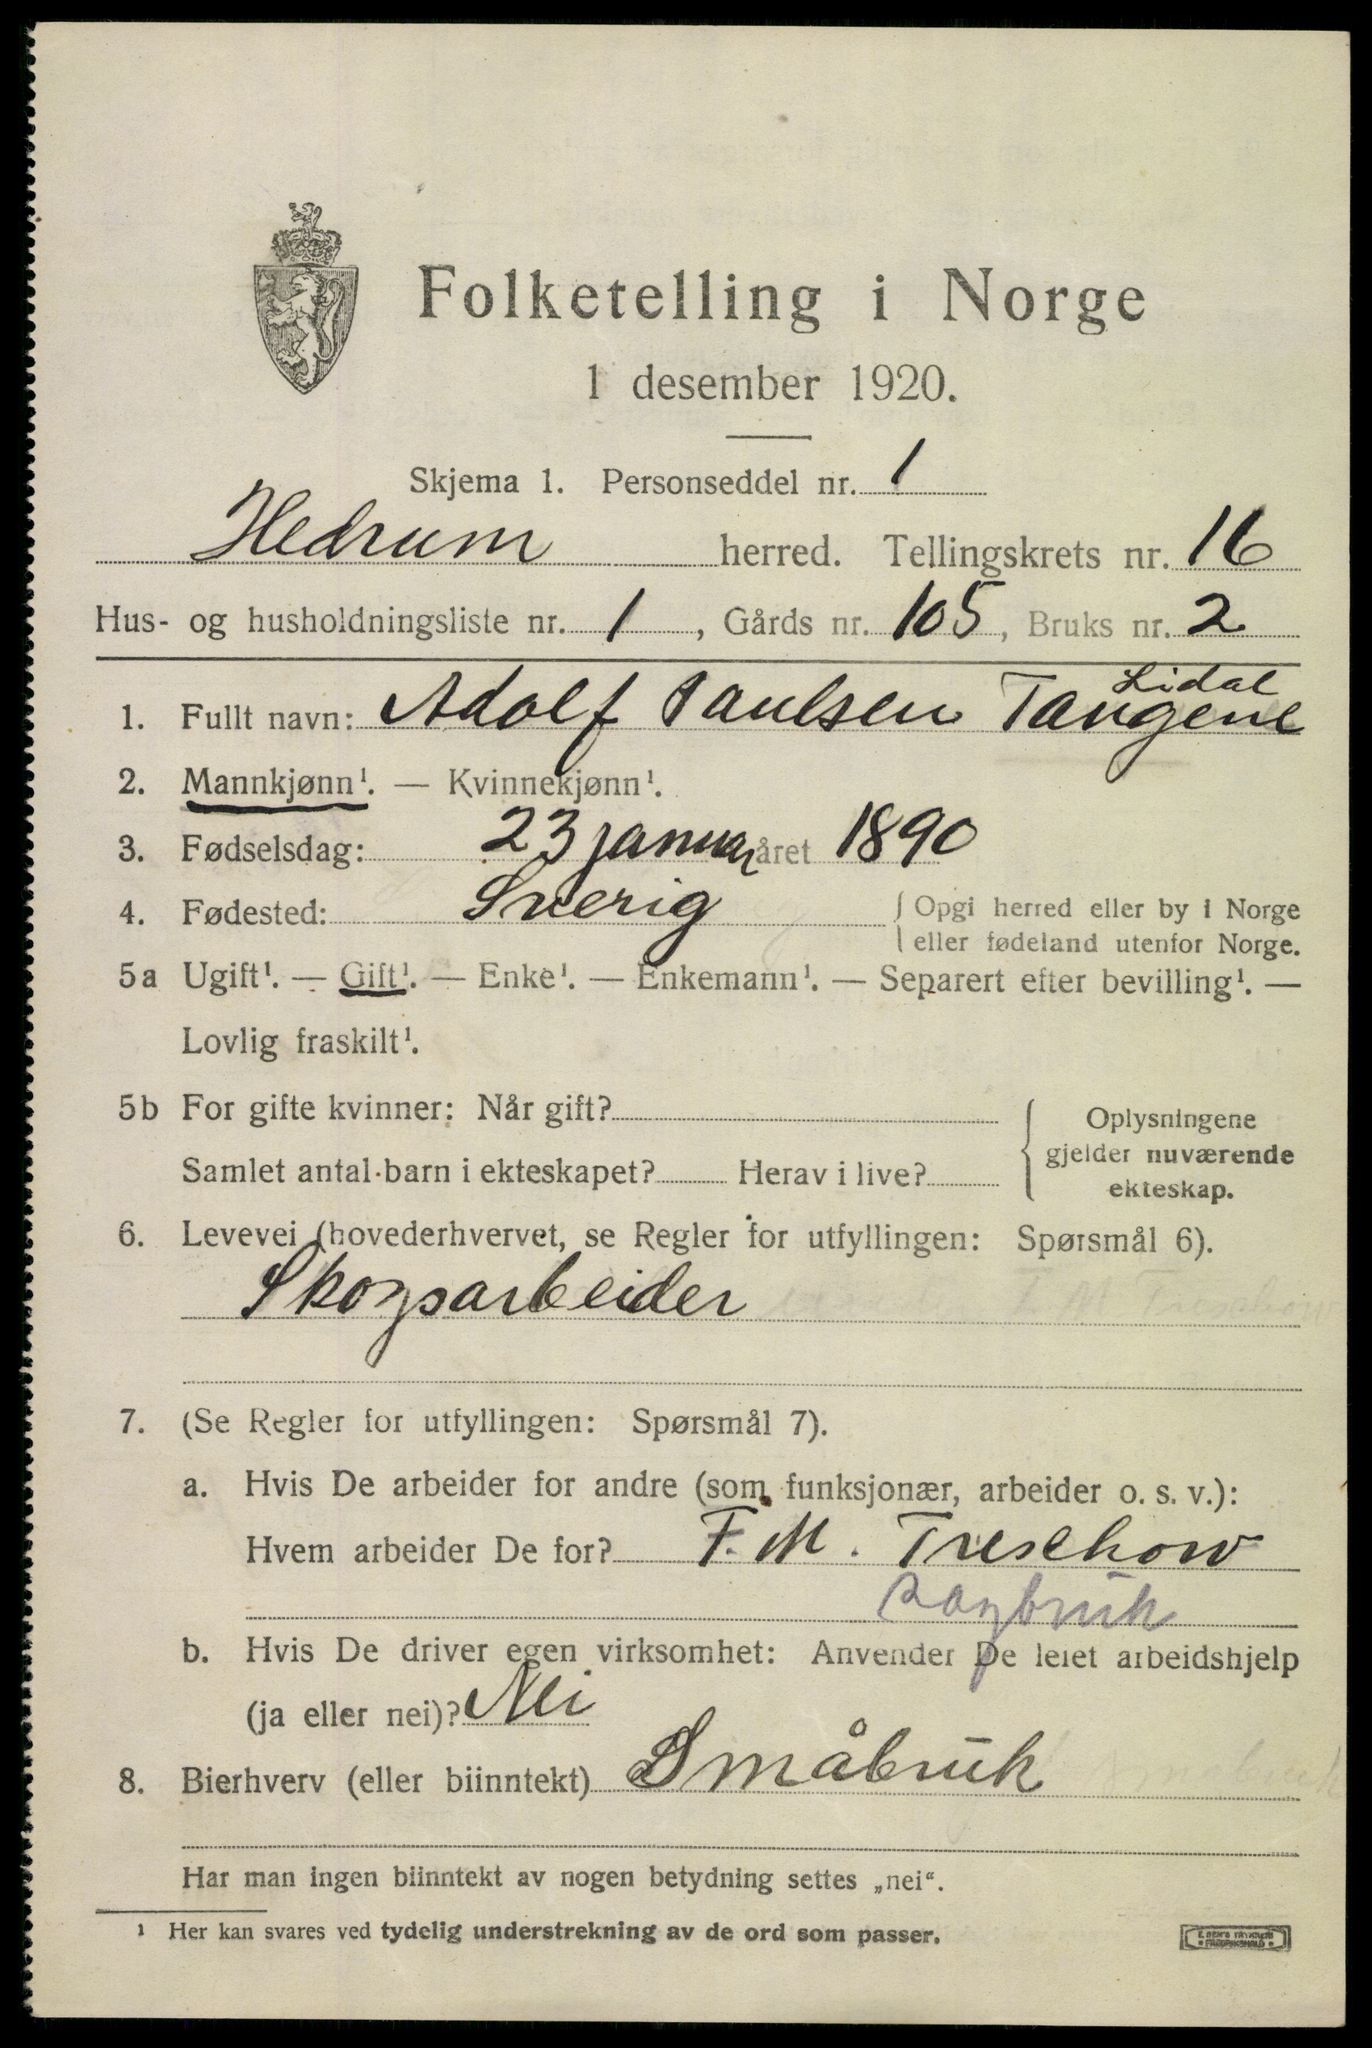 Folketelling i Norge
1 desember 1920.
Skjema 1. Personseddel nr. 1
Hedrum herred. Tellingskrets nr. 16
Hus- og husholdningsliste nr. 1, Gårds nr. 105, Bruks nr. 2
Lidal
1. Fullt navn: Adolf Paulsen Tangene
2. Mannkjønn¹. — Kvinnekjønn¹.
3. Fødselsdag: 23 januar året 1890
4. Fødested: Sverig { Opgi herred eller by i Norge
eller fødeland utenfor Norge.
5a Ugift¹. — Gift¹. — Enke¹. — Enkemann¹. — Separert efter bevilling¹. —
Lovlig fraskilt¹.
5b For gifte kvinner: Når gift? { Oplysningene
gjelder nuværende
Samlet antal barn i ekteskapet? Herav i live? ekteskap.
6. Levevei (hovederhvervet, se Regler for utfyllingen: Spørsmål 6).
Skogsarbeider
7. (Se Regler for utfyllingen: Spørsmål 7).
a. Hvis De arbeider for andre (som funksjonær, arbeider o. s. v.):
Hvem arbeider De for? F. M. Treschow
b. Hvis De driver egen virksomhet: Anvender De leiet arbeidshjelp
(ja eller nei)? Nei
8. Bierhverv (eller biinntekt) Småbruk
Har man ingen biinntekt av nogen betydning settes „nei“.
¹ Her kan svares ved tydelig understrekning av de ord som passer.